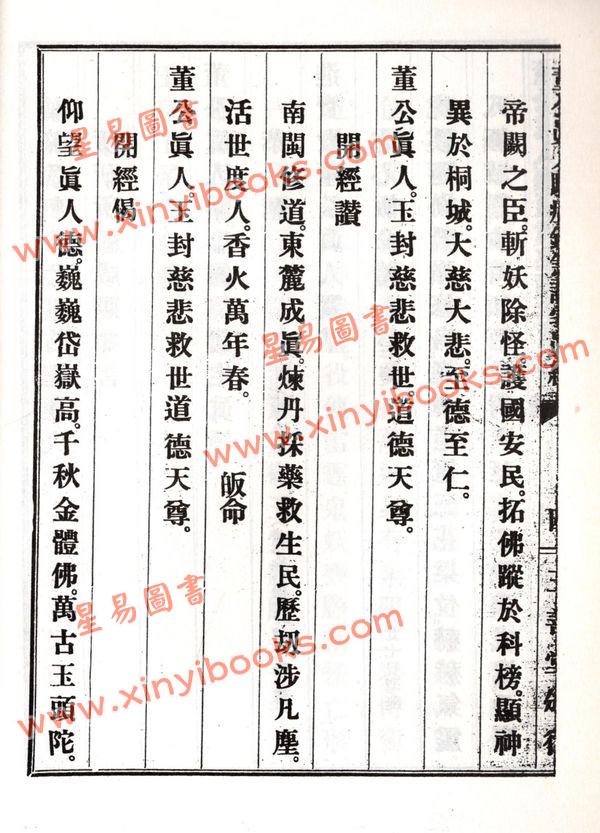 帝闕之臣。斬妖除怪。護國安民。拓佛蹤於科榜。顯神
異於桐城。大慈大悲。至德至仁。
董公眞人。玉封慈悲救世。道德天尊。
開經讚
南閩修道。東麓成眞。煉丹採藥救生民。歷刼涉凡塵。
活世度人。香火萬年春。 皈命
董公眞人。玉封慈悲救世道德天尊。
開經偈
仰望眞人德。巍巍岱嶽高。千秋金體佛。萬古玉頭陀。
星易圖書
www.xinyibooks.com
星易圖書
www.xinyibooks.com
星易圖書
www.xinyibooks.com